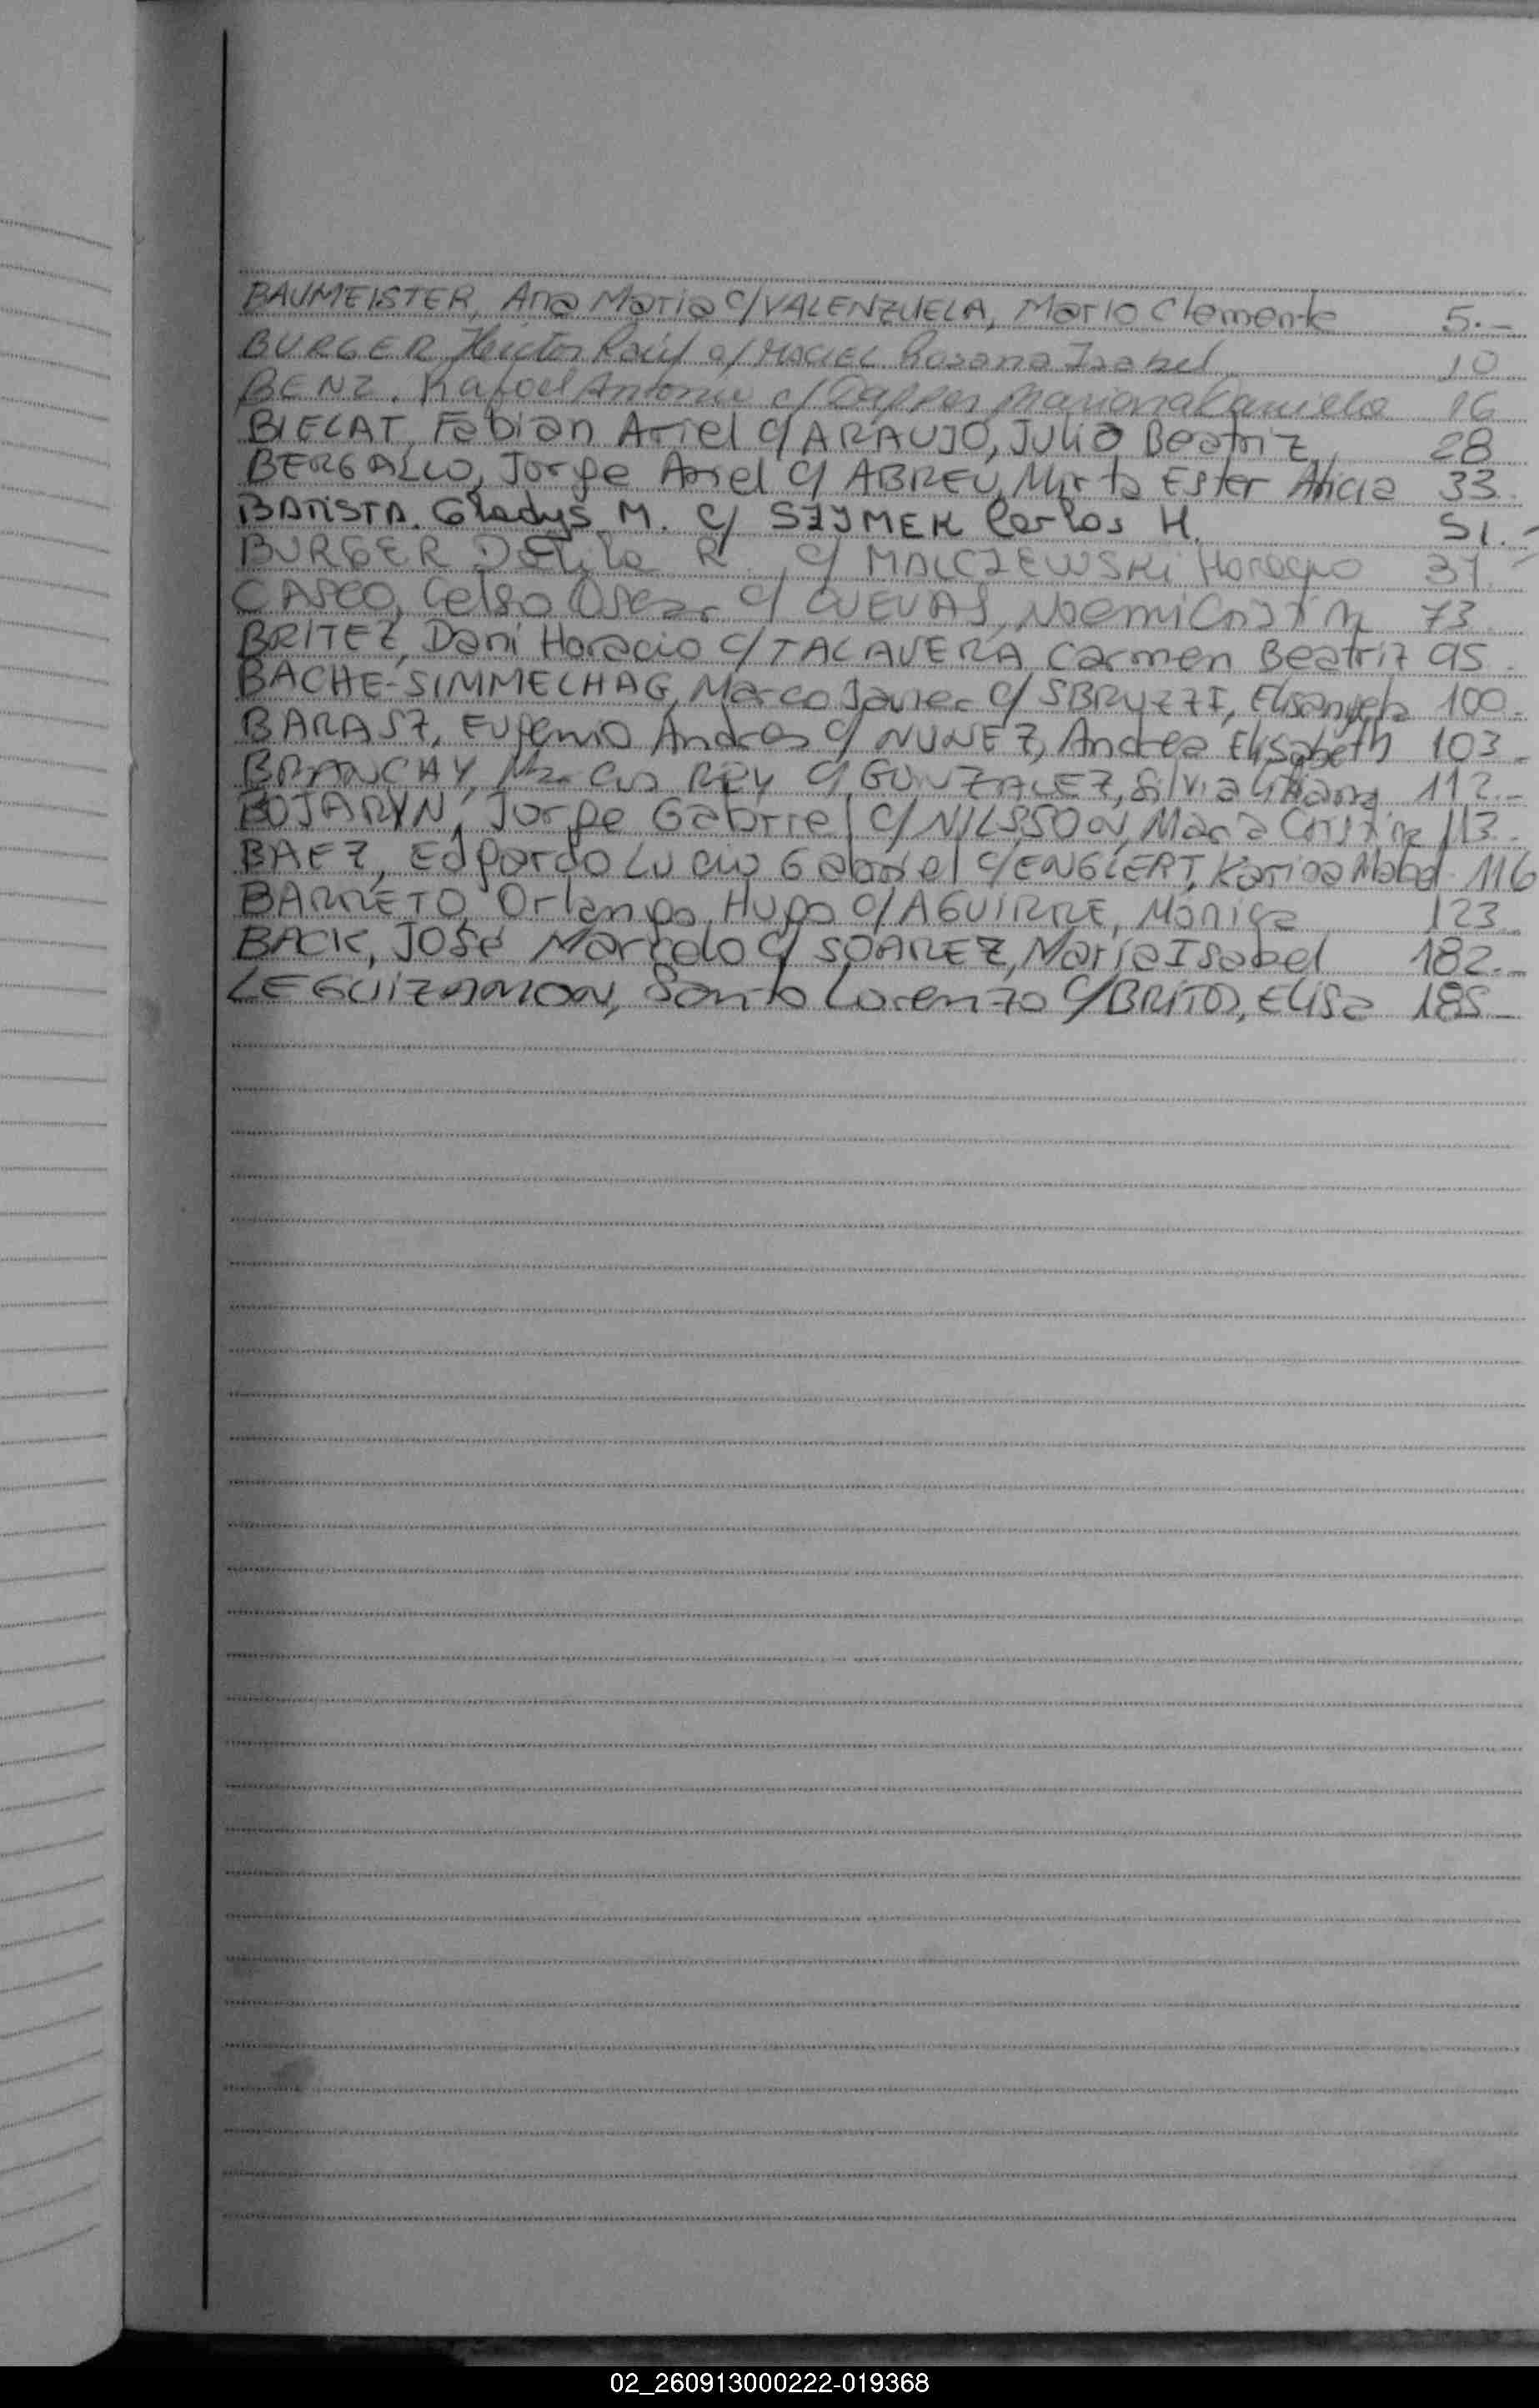 BAUMEISTER, Ana Maria c/ VALENZUELA, Mario Clemente 5.-
BURGER Héctor Raúl c/ MACIEL Rosana Isabel 10
BENZ. Rafael Antonio c/ Dapper Mariana Daniela 16
BIELAT, Fabian Ariel c/ ARAUJO, Julia Beatriz 28
BERGALLO, Jorge Ariel c/ ABREU, Mirta Ester Alicia 33.
BATISTA. Gladys M. c/ SZYMEK Carlos H. 51.-
BURGER Dalila R. c/ MALCZEWSKI Horacio 31.-
CASCO, Celso Oscar c/ CUEVAS, Noemi Cristin 73.
BRITEZ, Dani Horacio c/ TALAVERA Carmen Beatriz 95.
BACHE-SIMMELHAG, Marco Javier c/ SBRUZZI, Elisangela 100.-
BARASZ, Eugenio Andres c/ NUNEZ, Andrea Elisabeth 103.-
BRANCHY, c/ GONZALEZ, Silvia Liliana 112.-
BOJARYN, Jorge Gabriel c/ NILSSON, Maria Cristina 113.
BAEZ, Edgardo Lucio Gabriel c/ ENGLERT, Karina Mabel 116
BARRETO, Orlando Hugo c/ AGUIRRE, Mónica 123
BACK, José Marcelo c/ SOAREZ, Maria Isabel 182.-
LEGUIZAMON, Santo Lorenzo c/ BRITOS, Elisa 185-
02_260913000222-019368